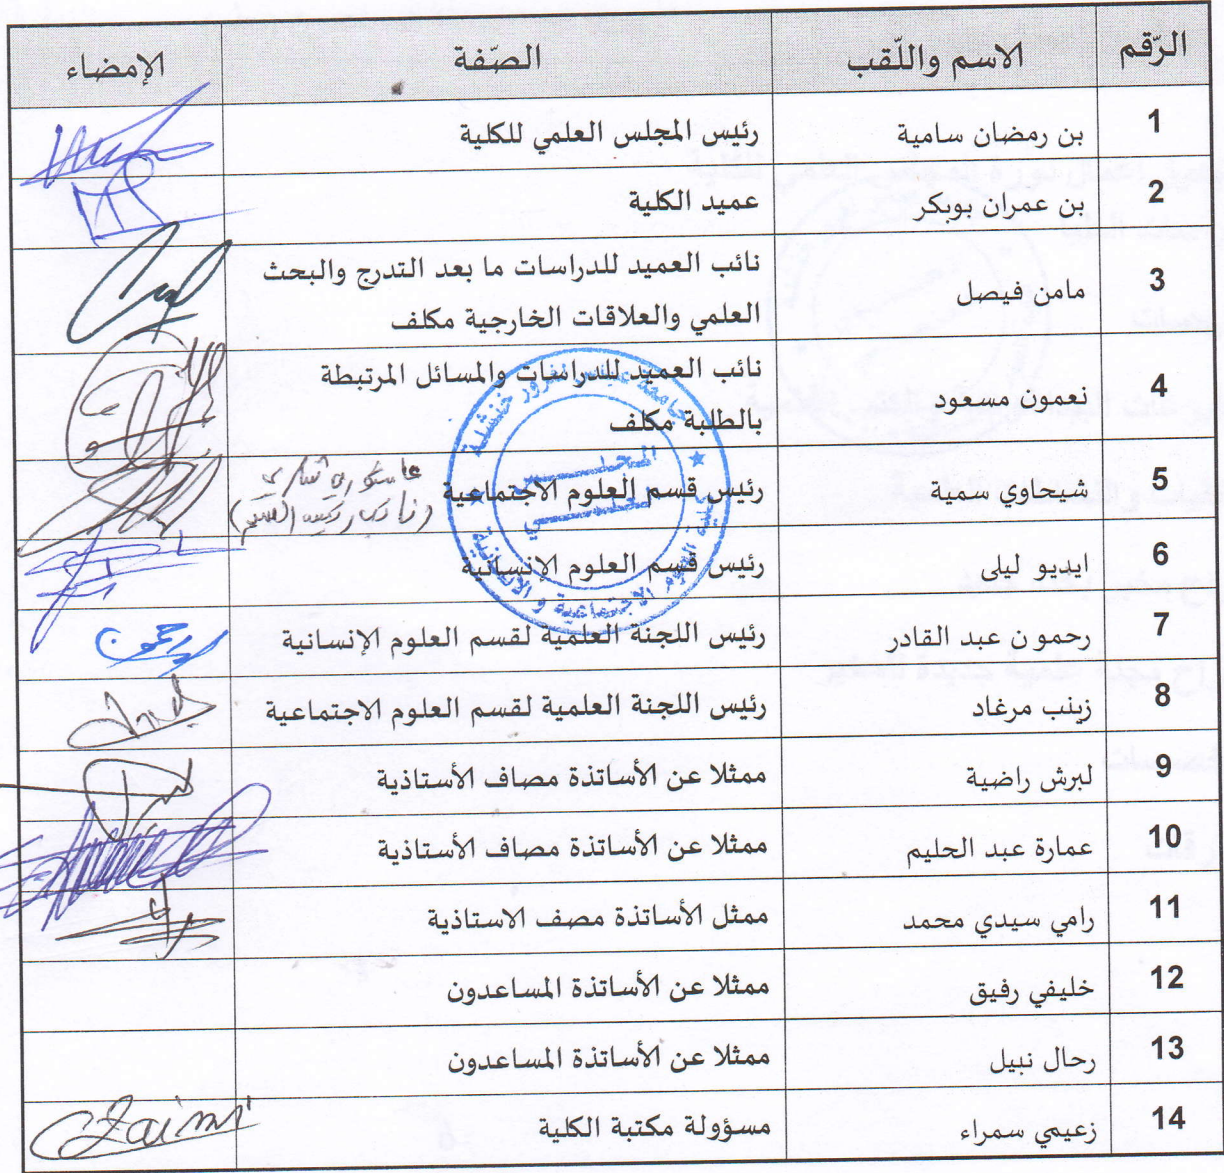 الرّقم الاسم واللّقب الصّفة الإمضاء
1 بن رمضان سامية رئيس المجلس العلمي للكلية
2 بن عمران بوبكر عميد الكلية
3 مامن فيصل نائب العميد للدراسات ما بعد التدرج والبحث
العلمي والعلاقات الخارجية مكلف
4 نعمون مسعود نائب العميد للدراسات والمسائل المرتبطة
بالطلبة مكلف
5 شيحاوي سمية رئيس قسم العلوم الاجتماعية
6 ايديو ليلى رئيس قسم العلوم الإنسانية
7 رحمون عبد القادر رئيس اللجنة العلمية لقسم العلوم الإنسانية
8 زينب مرغاد رئيس اللجنة العلمية لقسم العلوم الاجتماعية
9 لبرش راضية ممثلا عن الأساتذة مصاف الأستاذية
10 عمارة عبد الحليم ممثلا عن الأساتذة مصاف الأستاذية
11 رامي سيدي محمد ممثل الأساتذة مصف الاستاذية
12 خليفي رفيق ممثلا عن الأساتذة المساعدون
13 رحال نبيل ممثلا عن الأساتذة المساعدون
14 زعيمي سمراء مسؤولة مكتبة الكلية Zaimi
جامعة عباس لغرور خنشلة
كلية العلوم الاجتماعية و الانسانية
المجلس
العلمي